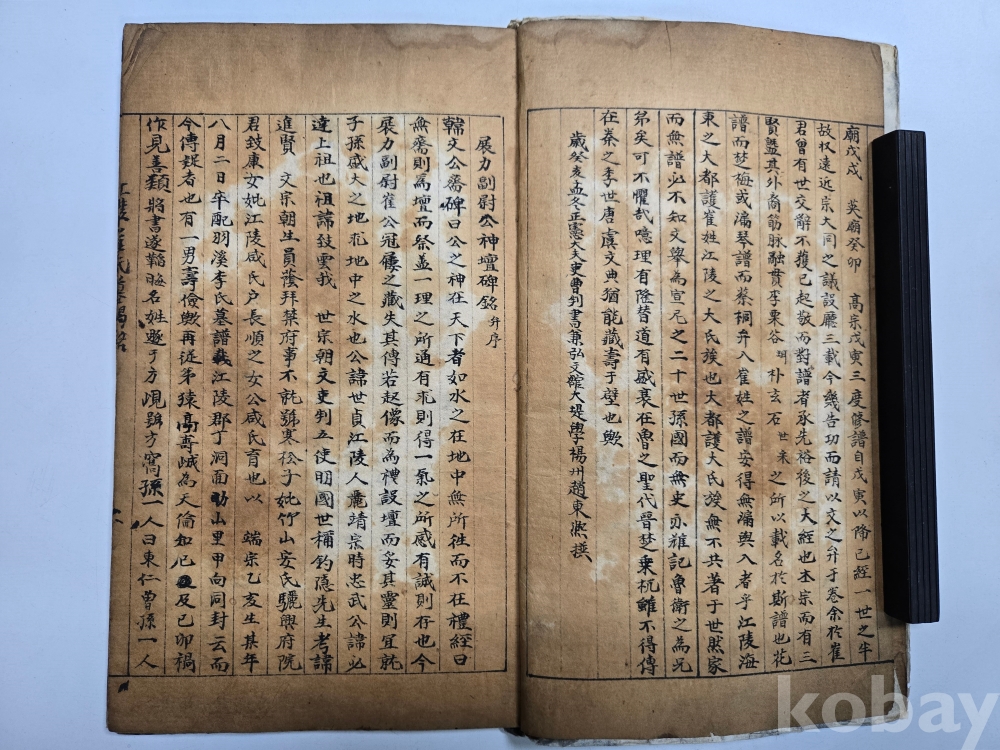 廟戊戌 英廟癸卯 高宗戊寅三度修譜自戊寅以降已經一世之半
故权遠近宗大同之議設廳三載今幾告功而請以文之弁于卷余於崔
君曾有世交辭不獲已起敬而對譜者承先裕後之大經也本宗而有三
賢盤其外裔筋脉融貫李栗谷珥朴玄石世采之所以載名於斯譜也花
譜而楚梅或漏琴譜而蔡桐弁入崔姓之譜安得無漏與入者乎江陵海
東之大都護崔姓江陵之大氏族也大都護大氏族無不共著于世然家
而無譜必不知文簿為宣尼之二十世孫國而無史亦難記魯衛之為兄
弟矣可不懼哉噫理有陰替道有盛衰在魯之聖代晉楚乘杌雖不得傳
在秦之季世唐虞文典猶能藏壽于壁也歟
歲癸亥孟冬正憲大夫吏曹判書兼弘文館大堤學楊州趙東熙撰
展力副尉公神壇碑銘并序
韓文公喬碑曰公之神在天下者如水之在地中無所往而不在禮經曰
無喬則為壇而祭盖一理之所通有求則得一氣之所感有誠則存也今
展力副尉崔公冠屨之藏失其傳若起像而為禮設壇而妥其靈則宜就
子孫盛大之地求地中之水也公諱世貞江陵人麗靖宗時忠武公諱必
達上祖也祖諱致雲我 世宗朝文吏判五使明國世稱釣隱先生考諱
進賢 文宗朝生員蔭拜禁府事不就號寒松子妣竹山安氏驪興府院
君致康女妣江陵咸氏户長順之女公咸氏育也以 端宗乙亥生某年
八月二日卒配羽溪李氏墓譜載江陵郡丁洞面助山里甲向同封云而
今傳疑者也有一男壽儉與再從弟猿亭壽峸為天倫知己及己卯禍
作見善類將書遂韜晦名姓遯于方峴號方窩孫一人曰東仁曾孫一人